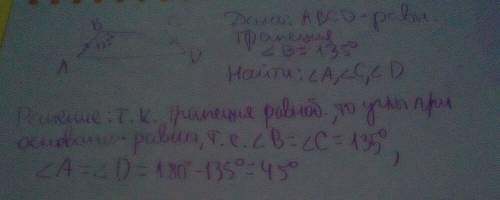 Дано: ABCD-равн.
трапеция
∠B=135°
Найти: ∠A,∠C,∠D
B
C
135°
A
D
Решение: т.к. трапеция равноб., то углы при
основании равны, т.е. ∠B=∠C=135°,
∠A=∠D=180°-135°=45°